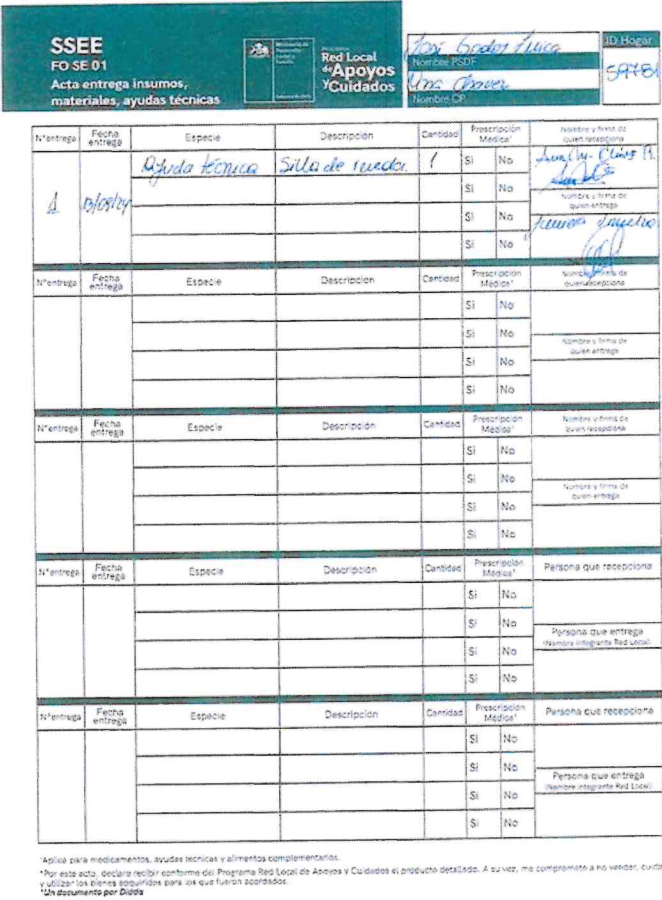 SSEE
FO SE 01
Acta entrega insumos,
materiales, ayudas técnicas
Ministerio de
Desarrollo
Social y
Familia
Red Local
de Apoyos
y Cuidados
José Godoy
Nombre PSDF
Ana Chavez
Nombre CP
ID Hogar
N°entrega Fecha entrega Especie Descripción Cantidad Prescripción Médica* Nombre y firma de quien recepciona
1 13/09/24 Ayuda técnica Silla de ruedas. 1 Si No
Si No
Nombre y firma de quien entrega
Si No
Si No
N°entrega Fecha entrega Especie Descripción Cantidad Prescripción Médica* Nombre y firma de quien recepciona
Si No
Si No
Nombre y firma de quien entrega
Si No
Si No
N°entrega Fecha entrega Especie Descripción Cantidad Prescripción Médica* Nombre y firma de quien recepciona
Si No
Si No
Nombre y firma de quien entrega
Si No
Si No
N°entrega Fecha entrega Especie Descripción Cantidad Prescripción Médica* Persona que recepciona
Si No
Si No
Persona que entrega
(Nombre integrante Red Local)
Si No
Si No
N°entrega Fecha entrega Especie Descripción Cantidad Prescripción Médica* Persona que recepciona
Si No
Si No
Persona que entrega
(Nombre integrante Red Local)
Si No
Si No
*Aplica para medicamentos, ayudas técnicas y alimentos complementarios.
*Por este acto, declaro recibir conforme del Programa Red Local de Apoyos y Cuidados el producto detallado. A su vez, me comprometo a no vender, cuidar
y utilizar los bienes adquiridos para los que fueron acordados.
*Un documento por Diada